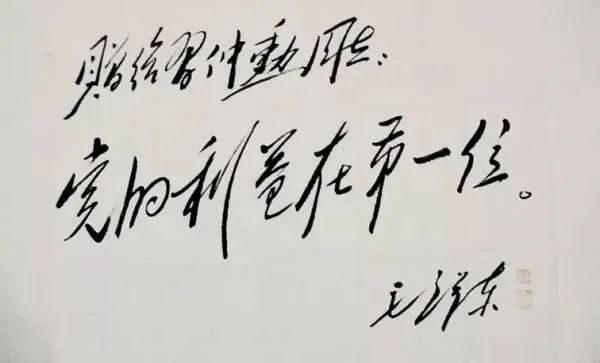 赠给习仲勳同志：
党的利益在第一位。
毛泽东